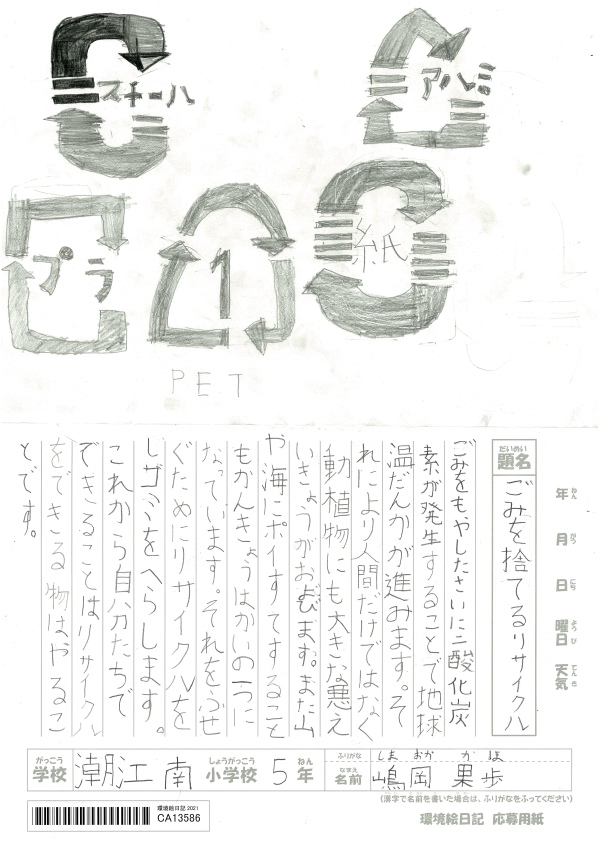 スチール
アルミ
プラ
1
紙
PET
だいめい
題名
ごみを捨てるリサイクル
年 ねん
月 がつ
日 にち
曜日 ようび
天気 てんき
ごみをもやしたさいに二酸化炭
素が発生することで地球
温だんかが進みます。そ
れにより人間だけではなく
動植物にも大きな悪え
いきょうがおよびます。また山
や海にポイすてすること
もかんきょうはかいの一つに
なっています。それをふせ
ぐためにリサイクルを
しゴミをへらします。
これから自分たちで
できることはリサイクル
をできる物はやるこ
とです。
がっこう しょうがっこう ねん
学校 潮江南 小学校 5年
ふりがな しま おか か ほ
なまえ
名前 嶋岡 果歩
(漢字で名前を書いた場合は、ふりがなをふってください)
環境絵日記 2021
CA13586
環境絵日記 応募用紙